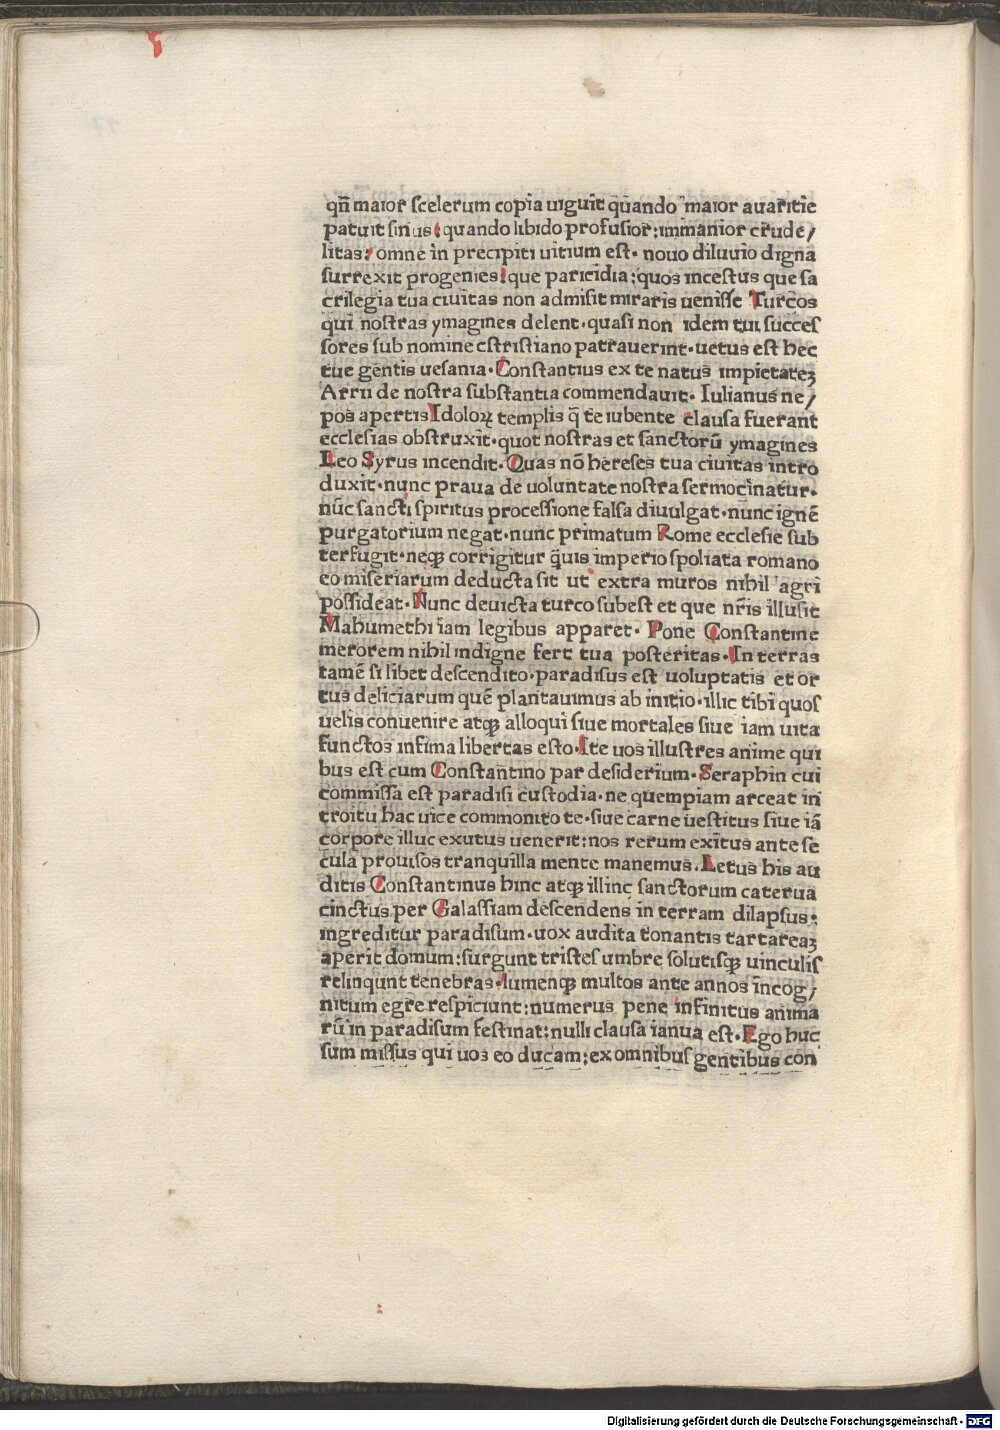 qn̄ maior scelerum copia uiguit quando maior auaritie
patuit sinus: quando libido profusior: immanior crude/
litas: omne in precipiti uitium est. nouo diluuio digna
surrexit progenies: que paricidia: quos incestus que sa
crilegia tua ciuitas non admisit miraris uenisse Turcos
qui nostras ymagines delent. quasi non idem tui succes
sores sub nomine cstristiano patrauerint. uetus est hec
tue gentis uesania. Constantius ex te natus impietateꝫ
Arrii de nostra substantia commendauit. Iulianus ne/
pos apertis Idoloꝝ templis q̄ te iubente clausa fuerant
ecclesias obstruxit. quot nostras et sanctorū ymagines
Leo Syrus incendit. Quas nō hereses tua ciuitas intro
duxit. nunc praua de uoluntate nostra sermocinatur.
nūc sancti spiritus processione falsa diuulgat. nunc ignē
purgatorium negat. nunc primatum Rome ecclesie sub
terfugit. neqꝫ corrigitur q̄uis imperio spoliata romano
eo miseriarum deducta sit ut extra muros nihil agri
possideat. Nunc deuicta turco subest et que nr̄is illusit
Mahumethi iam legibus apparet. Pone Constantine
merorem nihil indigne fert tua posteritas. In terras
tamē si libet descendito. paradisus est uoluptatis et or
tus deliciarum quē plantauimus ab initio. illic tibi quos
uelis conuenire atqꝫ alloqui siue mortales siue iam uita
functos infima libertas esto. Ite uos illustres anime qui
bus est cum Constantino par desiderium. Seraphin cui
commissa est paradisi custodia. ne quempiam arceat in
troitu hac uice commonito te. siue carne uestitus siue iā
corpore illuc exutus uenerit: nos rerum exitus ante se
cula prouisos tranquilla mente manemus. Letus his au
ditis Constantinus hinc atqꝫ illinc sanctorum caterua
cinctus per Galassiam descendens in terram dilapsus:
ingreditur paradisum. uox audita tonantis tartareaꝫ
aperit domum: surgunt tristes umbre solutisqꝫ uinculis
relinqunt tenebras. lumenqꝫ multos ante annos incog/
nitum egre respiciunt: numerus pene infinitus anima
rū in paradisum festinat: nulli clausa ianua est. Ego huc
sum missus qui uos eo ducam: ex omnibus gentibus con
Digitalisierung gefördert durch die Deutsche Forschungsgemeinschaft - DFG